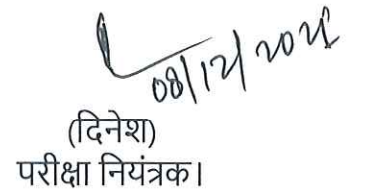 08/12/202
(दिनेश)
परीक्षा नियंत्रक।